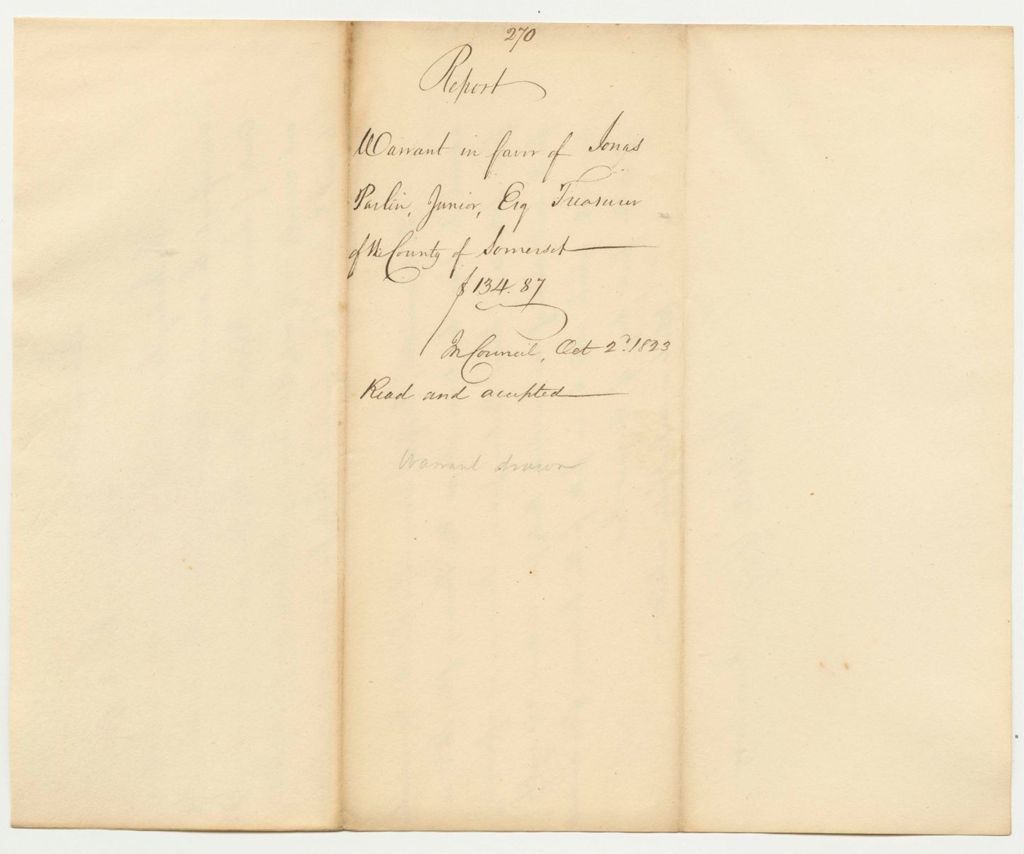 270
Report
Warrant in favor of Jonas
Parlin, Junior, Esq Treasurer
of the County of Somerset
$134.87
In Council, Oct 2d. 1823
Read and accepted
Warrant drawn